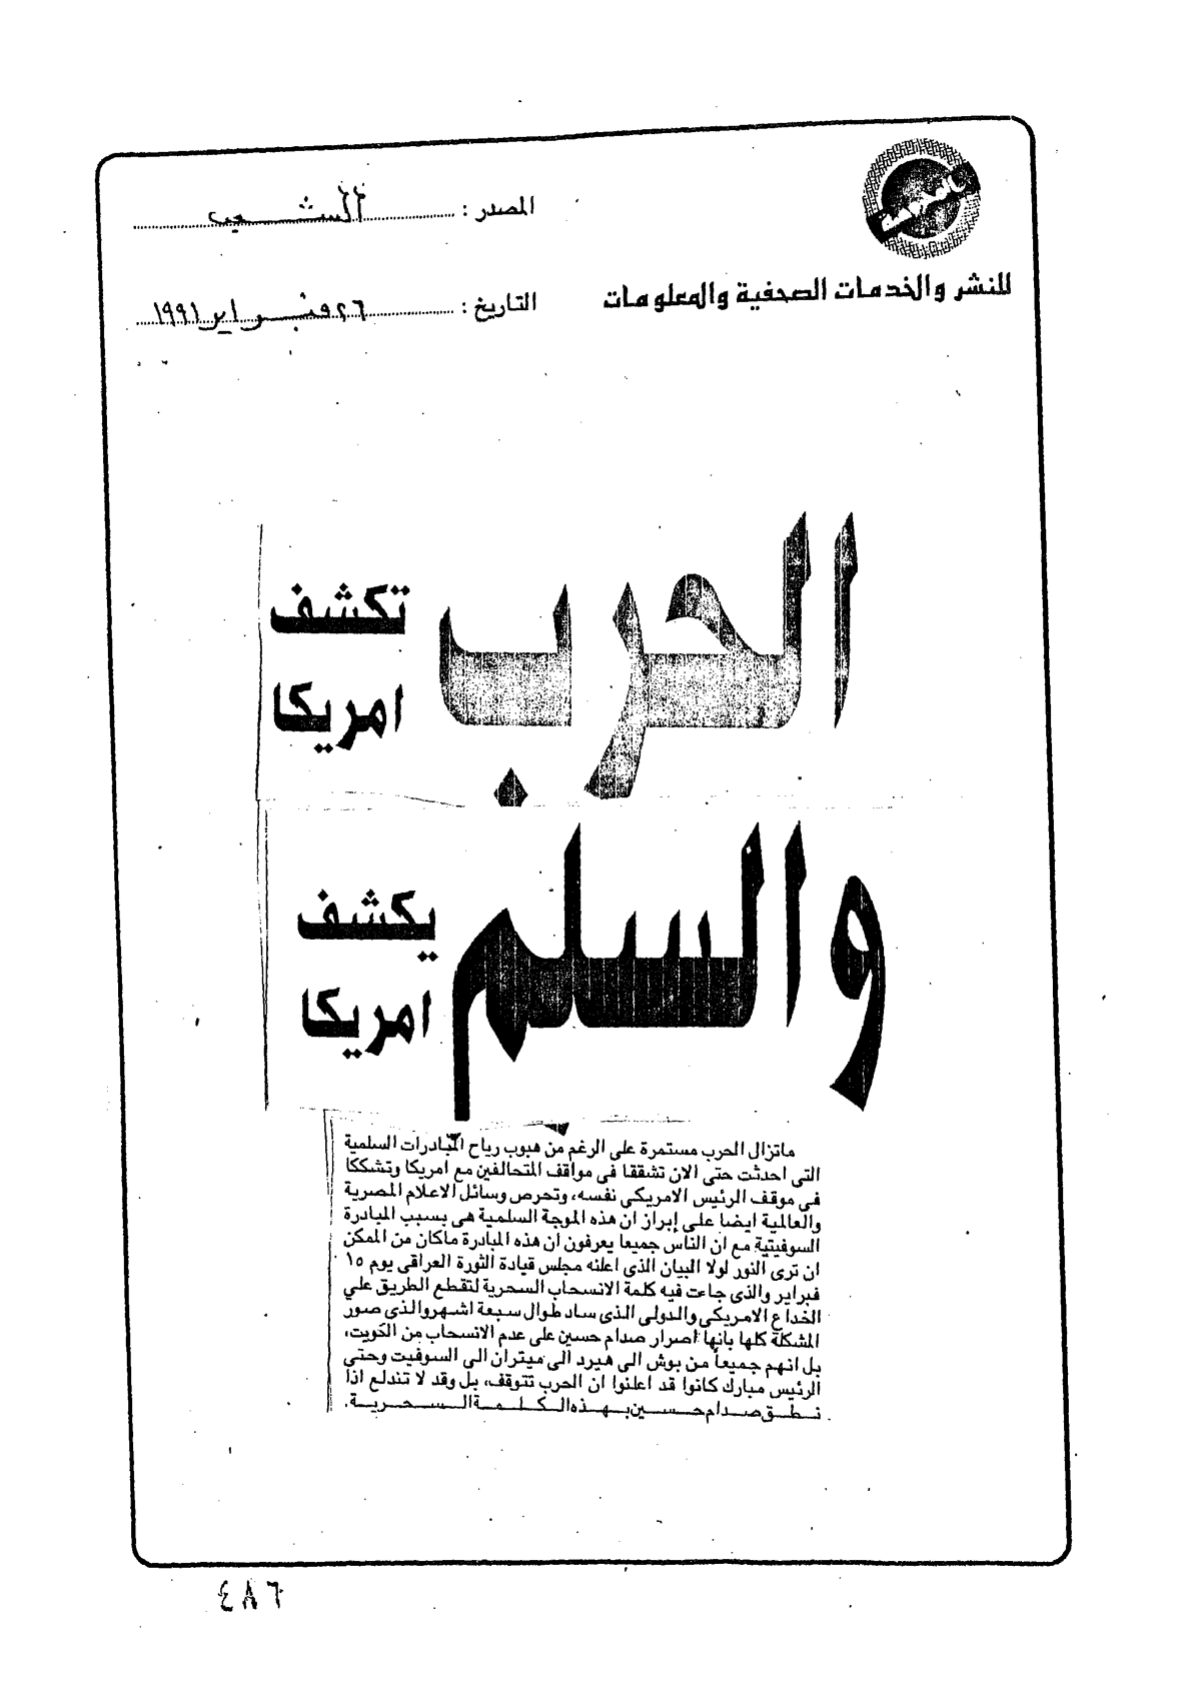 المصدر : الشعب
للنشر والخدمات الصحفية والمعلومات
التاريخ : ٢٦ فبراير ١٩٩١
الحرب
تكشف
امريكا
والسلم
يكشف
امريكا
ماتزال الحرب مستمرة على الرغم من هبوب رياح المبادرات السلمية
التى احدثت حتى الان تشققا فى مواقف المتحالفين مع امريكا وتشككا
فى موقف الرئيس الامريكى نفسه، وتحرص وسائل الاعلام المصرية
والعالمية ايضا على إبراز ان هذه الموجة السلمية هى بسبب المبادرة
السوفيتية مع ان الناس جميعا يعرفون ان هذه المبادرة ماكان من الممكن
ان ترى النور لولا البيان الذى اعلنه مجلس قيادة الثورة العراقى يوم ١٥
فبراير والذى جاءت فيه كلمة الانسحاب السحرية لتقطع الطريق علي
الخداع الامريكى والدولى الذى ساد طوال سبعة اشهر والذى صور
المشكلة كلها بانها اصرار صدام حسين على عدم الانسحاب من الكويت،
بل انهم جميعاً من بوش الى هيرد الى ميتران الى السوفيت وحتى
الرئيس مبارك كانوا قد اعلنوا ان الحرب تتوقف، بل وقد لا تندلع اذا
نطق صدام حسين بهذه الكلمة السحرية.
٤٨٦